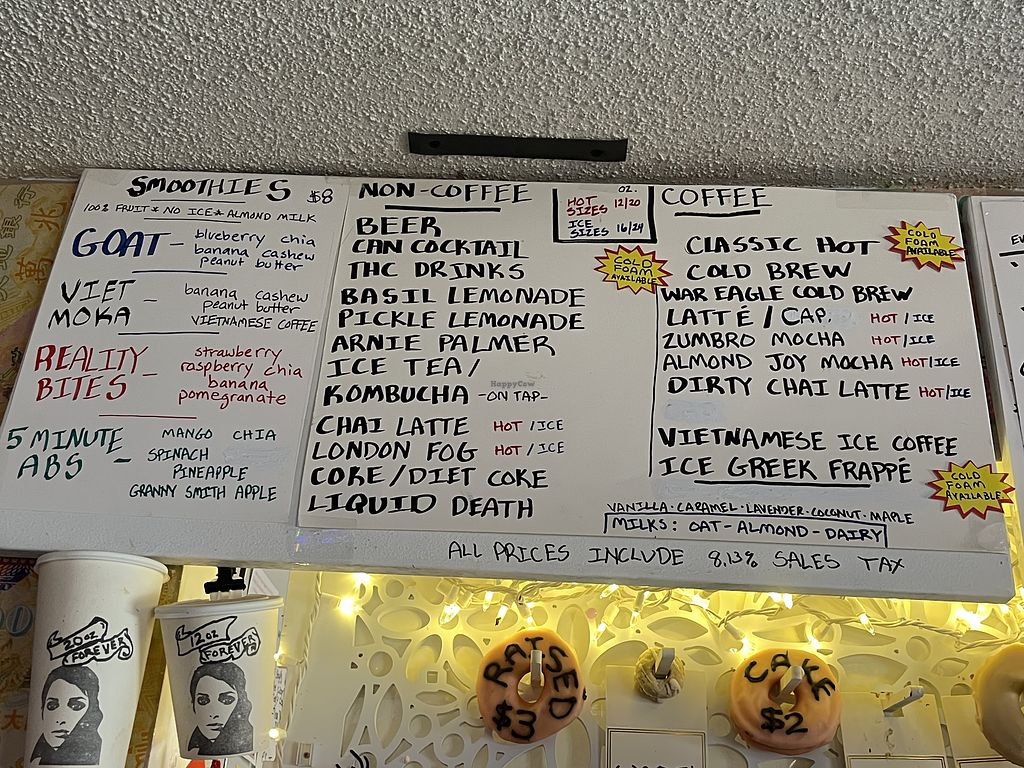 SMOOTHIES $8
100% FRUIT * NO ICE * ALMOND MILK
GOAT - blueberry chia
banana cashew
peanut butter
VIET MOKA - banana cashew
peanut butter
VIETNAMESE COFFEE
REALITY BITES - strawberry
raspberry chia
banana
pomegranate
5 MINUTE ABS - MANGO CHIA
SPINACH
PINEAPPLE
GRANNY SMITH APPLE
NON-COFFEE
BEER
CAN COCKTAIL
THC DRINKS
BASIL LEMONADE
PICKLE LEMONADE
ARNIE PALMER
ICE TEA/
KOMBUCHA -ON TAP-
CHAI LATTE HOT / ICE
LONDON FOG HOT / ICE
COKE/DIET COKE
LIQUID DEATH
OZ.
HOT SIZES 12/20
ICE SIZES 16/24
COLD FOAM AVAILABLE
COFFEE
CLASSIC HOT
COLD FOAM AVAILABLE
COLD BREW
WAR EAGLE COLD BREW
LATTÉ / CAP. HOT / ICE
ZUMBRO MOCHA HOT / ICE
ALMOND JOY MOCHA HOT/ICE
DIRTY CHAI LATTE HOT/ICE
VIETNAMESE ICE COFFEE
ICE GREEK FRAPPÉ
COLD FOAM AVAILABLE
VANILLA · CARAMEL · LAVENDER · COCONUT · MAPLE
MILKS: OAT - ALMOND - DAIRY
ALL PRICES INCLUDE 8.13% SALES TAX
HappyCow
20oz FOREVER
12oz FOREVER
RAISED $3
CAKE $2